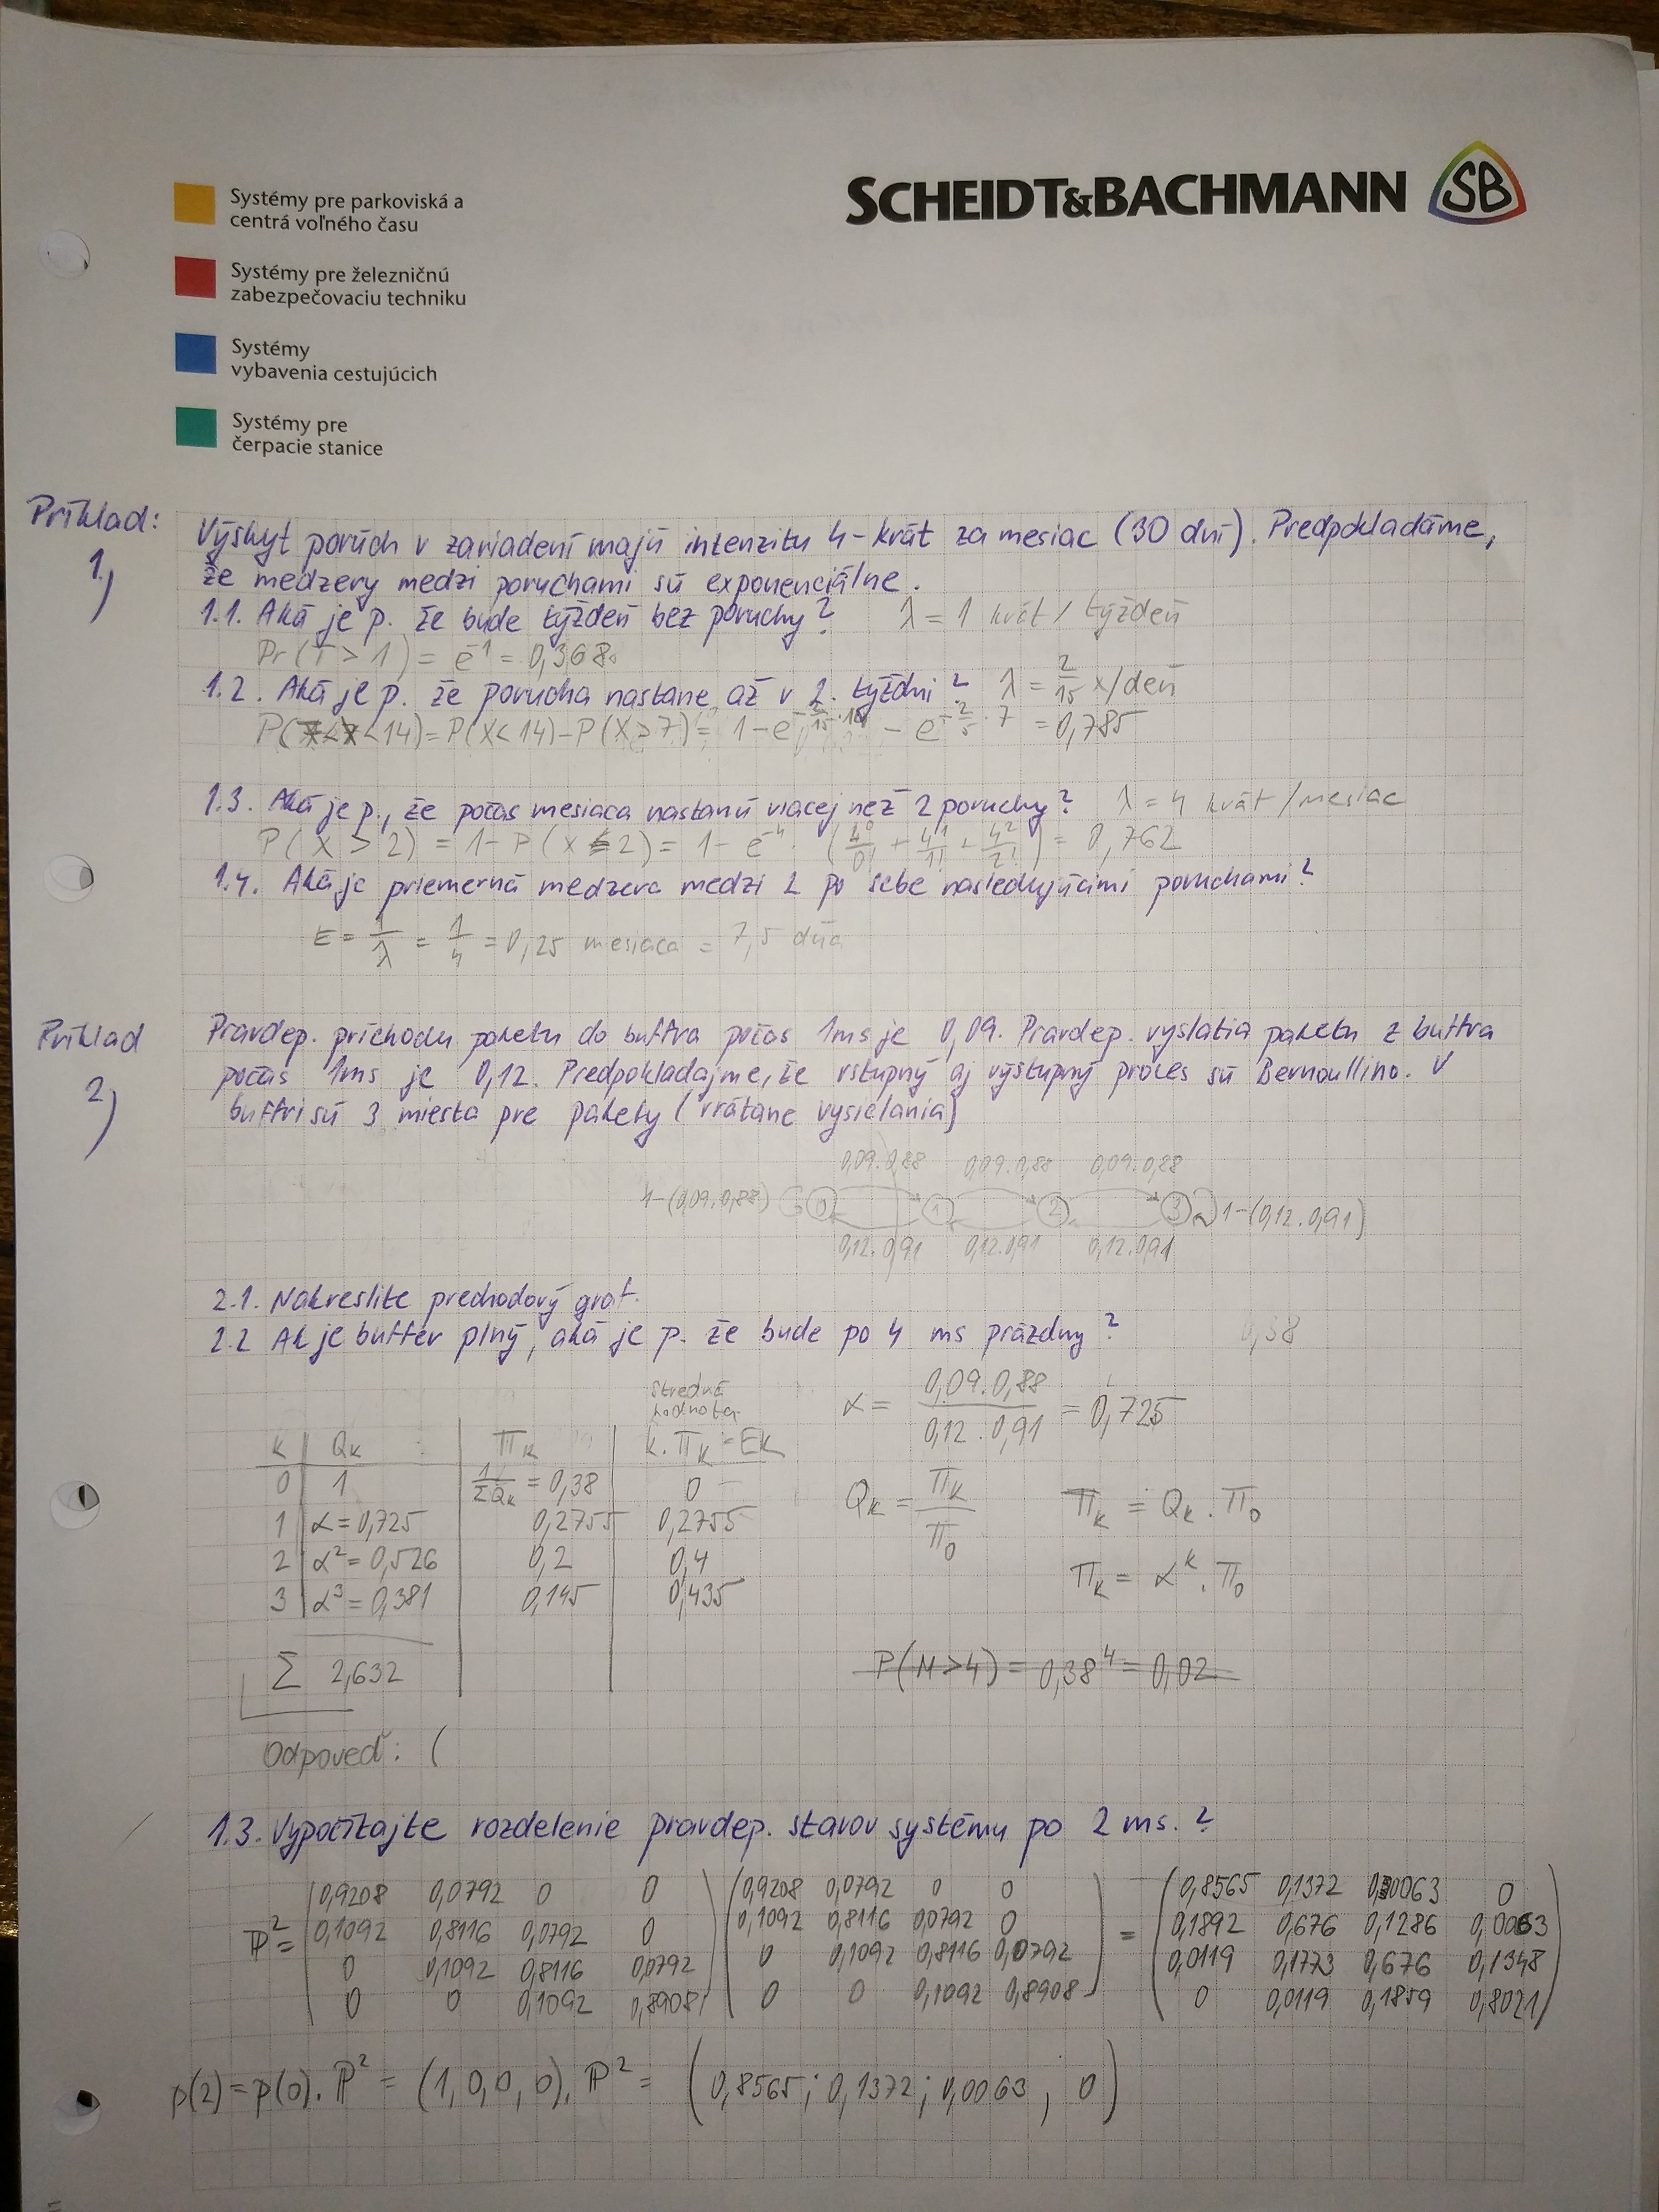 Systémy pre parkoviská a
centrá voľného času
SCHEIDT&BACHMANN SB
Systémy pre železničnú
zabezpečovaciu techniku
Systémy
vybavenia cestujúcich
Systémy pre
čerpacie stanice
Príklad:
1,)
Výskyt porúch v zariadení majú intenzitu 4-krát za mesiac (30 dní). Predpokladáme,
že medzery medzi poruchami sú exponenciálne.
1.1. Aká je p. že bude týždeň bez poruchy? λ = 1 krát / týždeň
Pr(T > 1) = e^-1 = 0,368
1.2. Aká je p. že porucha nastane až v 2. týždni? λ = 2/15 x/deň
< 14) = P(X < 14) - P(X ≥ 7) = 1 - e - e · 7 = 0,785
1.3. Aká je p., že počas mesiaca nastanú viacej než 2 poruchy? λ = 4 krát /mesiac
P(X > 2) = 1 - P(X ≤ 2) = 1 - e^-4 · (4^0/0! + 4^1/1! + 4^2/2!) = 0,762
1.4. Aká je priemerná medzera medzi 2 po sebe nasledujúcimi poruchami?
E = 1/λ = 1/4 = 0,25 mesiaca = 7,5 dňa
Príklad
2,)
Pravdep. príchodu paketu do buffra počas 1ms je 0,09. Pravdep. vyslatia paketu z buffra
počas 1ms je 0,12. Predpokladajme, že vstupný aj výstupný proces sú Bernoullino. V
buffri sú 3 miesta pre pakety (vrátane vysielania)
0,09.0,88 0,09.0,88 0,09.0,88
1-(0,09.0,88) 0 1 2 3 1-(0,12.0,91)
0,12.0,91 0,12.0,91 0,12.0,91
2.1. Nakreslite prechodový graf.
2.2 Ak je buffer plný, aká je p. že bude po 4 ms prázdny? 0,38
stredná
hodnota
α = 0,09.0,88 / 0,12.0,91 = 0,725
K Qk πk k.πk = Ek
0 1 1/ΣQk = 0,38 0
1 α = 0,725 0,2755 0,2755
2 α² = 0,526 0,2 0,4
3 α³ = 0,381 0,145 0,435
Qk = πk/π0 πk = Qk . π0
πk = α^k . π0
Σ 2,632
P(N>4) = 0,38^4 = 0,02
Odpoveď: (
1.3. Vypočítajte rozdelenie pravdep. stavov systému po 2 ms.?
0,9208 0,0792 0 0 0,9208 0,0792 0 0 0,8565 0,1372 0,0063 0
ℙ² = 0,1092 0,8116 0,0792 0 0,1092 0,8116 0,0792 0 = 0,1892 0,676 0,1286 0,0063
0 0,1092 0,8116 0,0792 0 0,1092 0,8116 0,0792 0,0119 0,1773 0,676 0,1348
0 0 0,1092 0,8908 0 0 0,1092 0,8908 0 0,0119 0,1859 0,8021
p(2) = p(0). ℙ² = (1,0,0,0). ℙ² = (0,8565; 0,1372; 0,0063, 0)